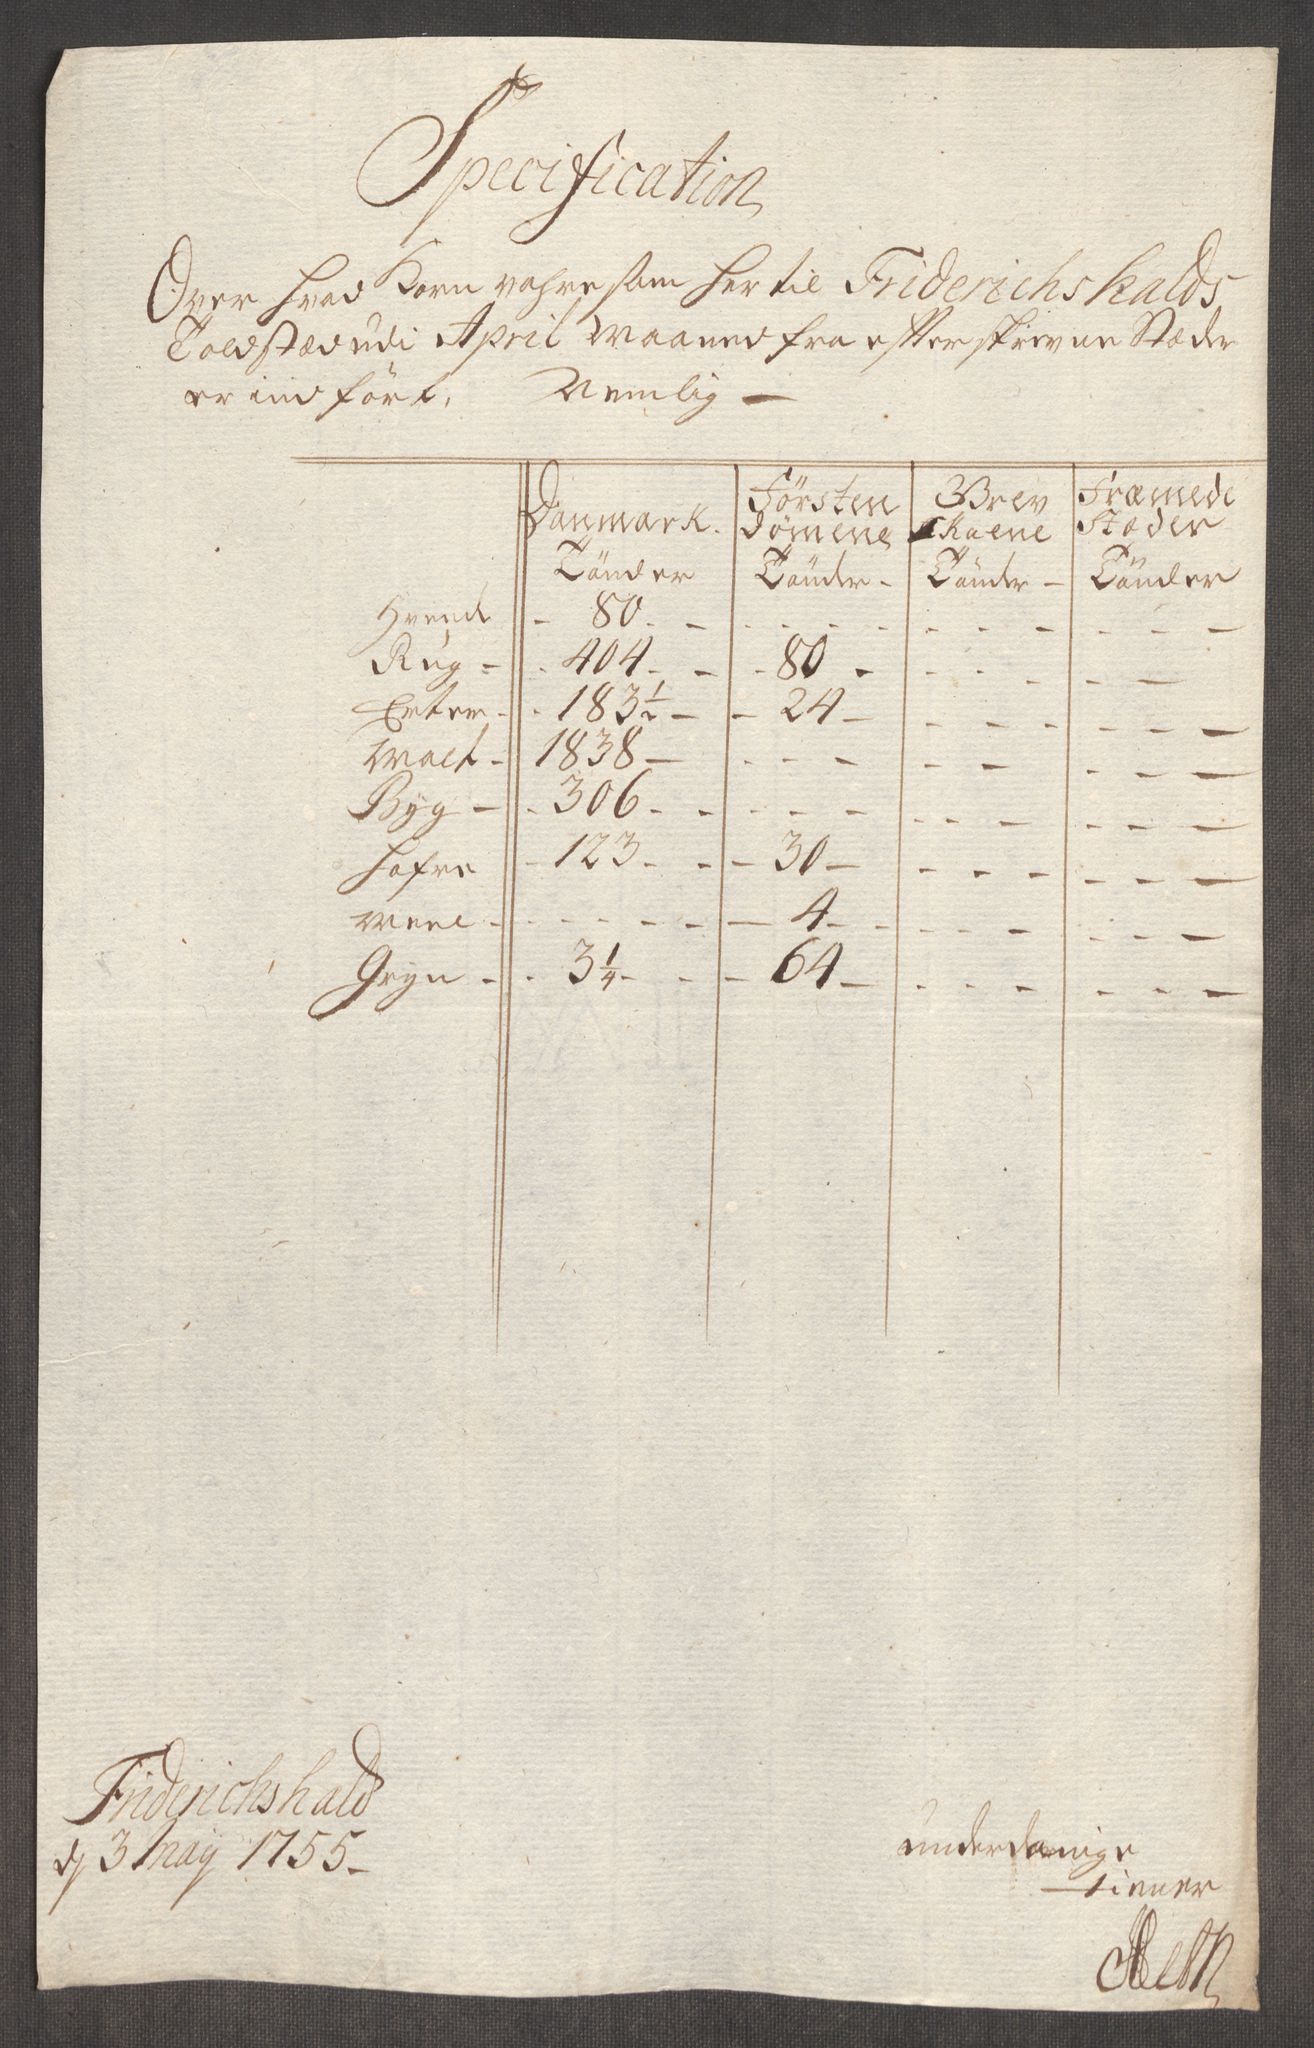 Specification
Over hvad Korn vahre som her til Friderichshalds
Toldstæd udi April Maaned fra efterskrevne Stæder
er ind ført. Nemlig —
Danmark. Førsten Brev Fræmede
dømene Skaene Stæder
Tønder Tønder - Tønder - Tønder
Hvede - 80. - - - - - - - - - - - -
Rug - - 404 - - - 80 - - - - - - - -
Erter - - 183½ - - 24 - - - - - - -
Malt - 1838 - - - - - - - - -
Byg - - 306 - - - - - - - - - - -
Hafre - 123 - - - 30 - - - - - - -
Meel - - - - - - - 4 - - - - - - - -
Gryn - - 3¼ - - - 64 - - - - - - - -
Friderichshald
d 3 May 1755 -
underdanige
tiener